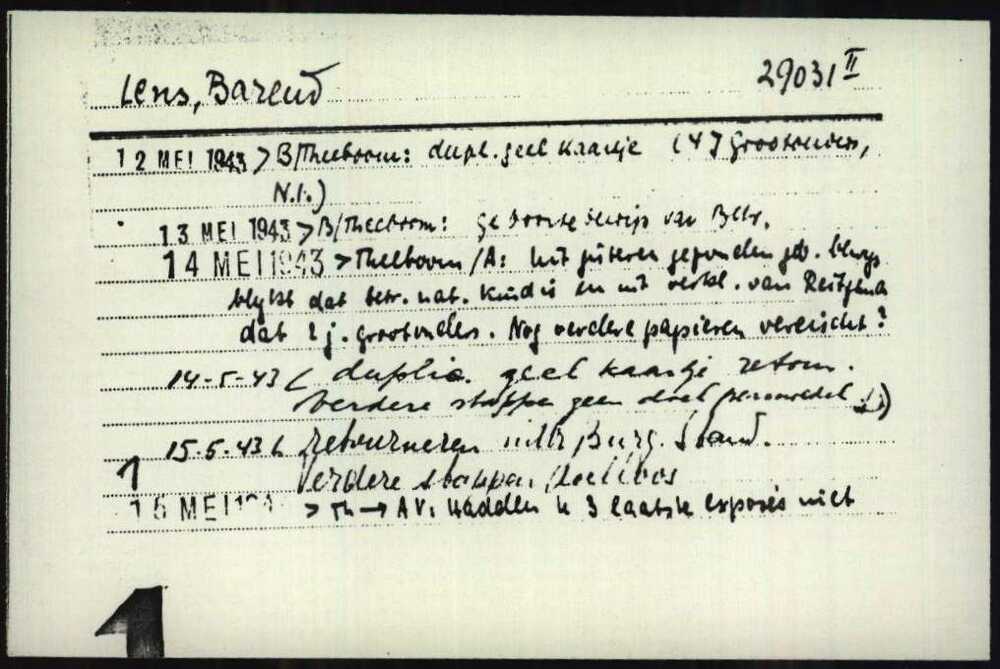 Lens, Barend 29031 II
12 MEI 1943 > B/Theeboom: dupl. geel kaartje (4 J Grootouders,
N.I.)
13 MEI 1943 > B/Theeboom: geboortebewijs van Betr.
14 MEI 1943 > Theeboom/A: Uit gevonden geb. bewijs
blykt dat betr. nat. kind is en uit verkl. van
dat 2 j. grootouders. Nog verdere papieren vereischt?
14-5-43 ( duplic. geel kaartje retour.
Verdere stappen geen doel
15.5.43 ( Retourneren Burg. Stand.
1 Verdere stappen doelloos
15 MEI 194 > Th → AV: Hadden U 3 laatste exposés niet
1